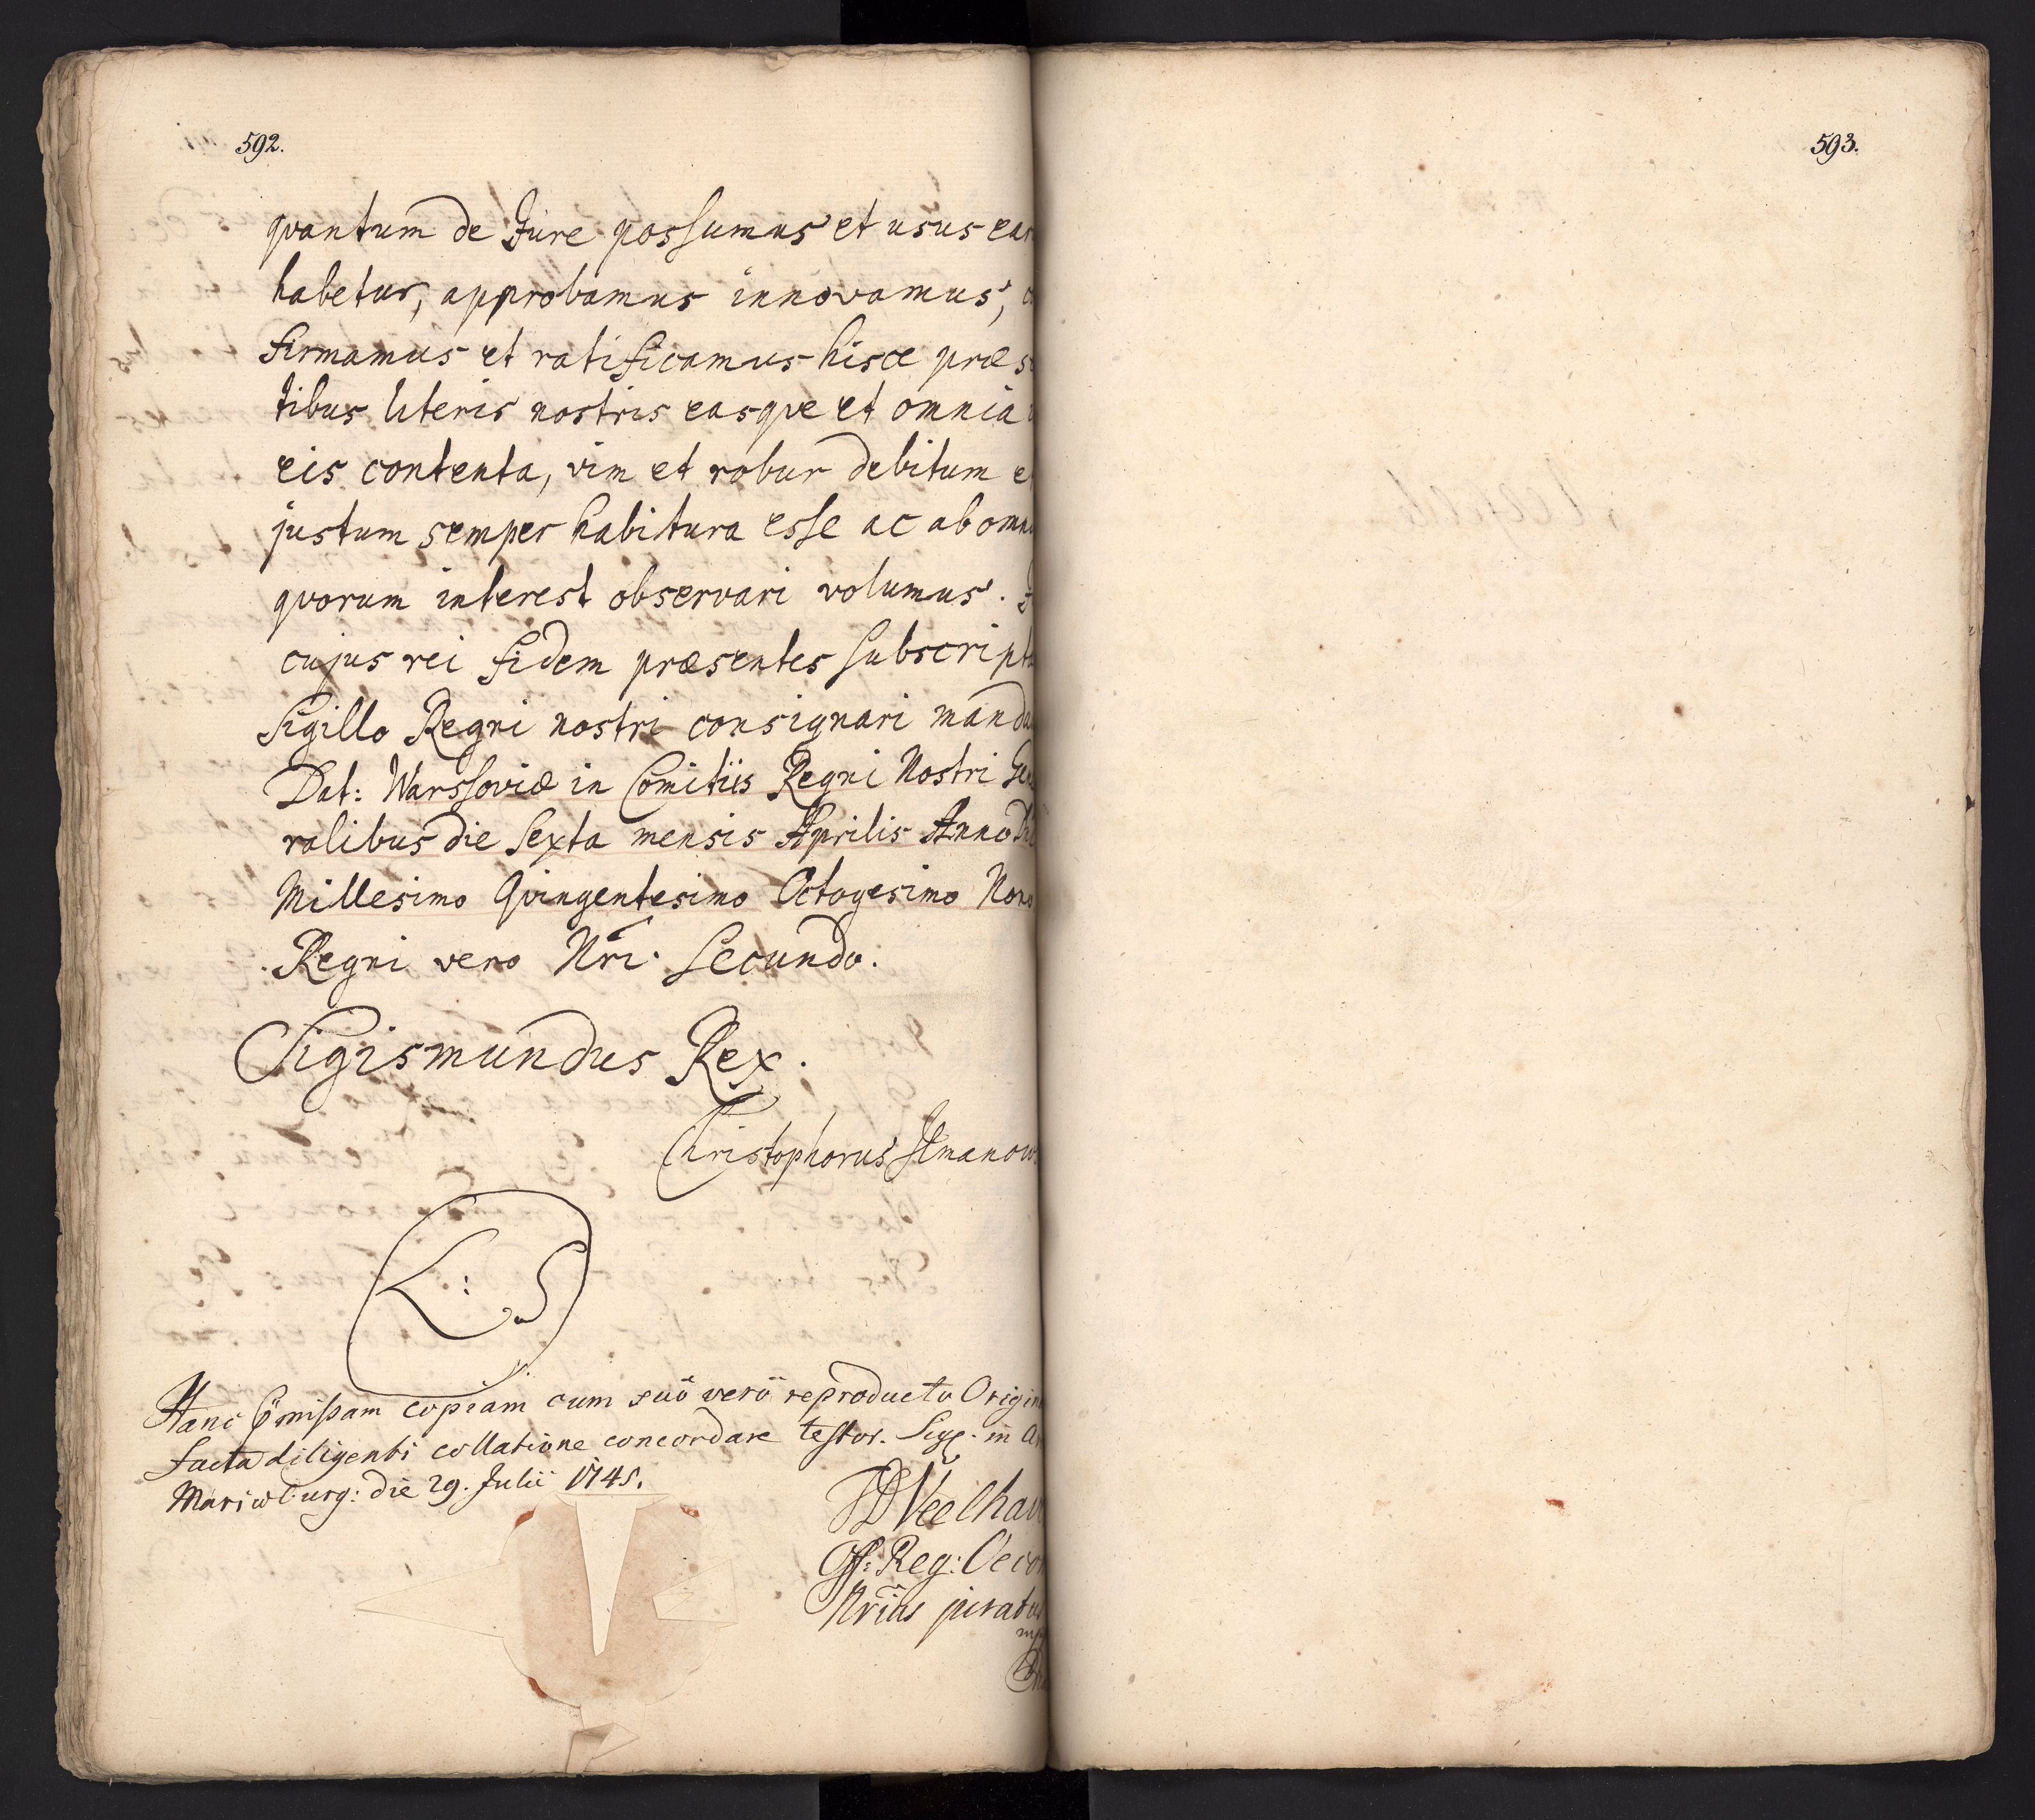 592.
quantum de Jure possumus et usus ear
habetur, approbamus innovamus,
firmamus et ratificamus hisce præs
tibus literis nostris easque et omnia
eis contenta, vim et robur debitum e
justum semper habitura esse ac ab omn
quorum interest observari volumus.
cujus rei fidem præsentes subscript
Sigillo Regni nostri consignari manda
Dat: Warssoviæ in Comitiis Regni Nostri Gen
ralibus die sexta mensis Aprilis Anno
Millesimo Quingentesimo Octogesimo Nono
Regni vero Nri. Secundo.
Sigismundus Rex.
Christophorus
L: S
Hanc copiam cum suo vero reproducto Origin
facta diligenti collatione concordare testor. in
Marieburg: die 29. Julii 1745.
Off: Reg: Oecon
Nrius juratus
593.